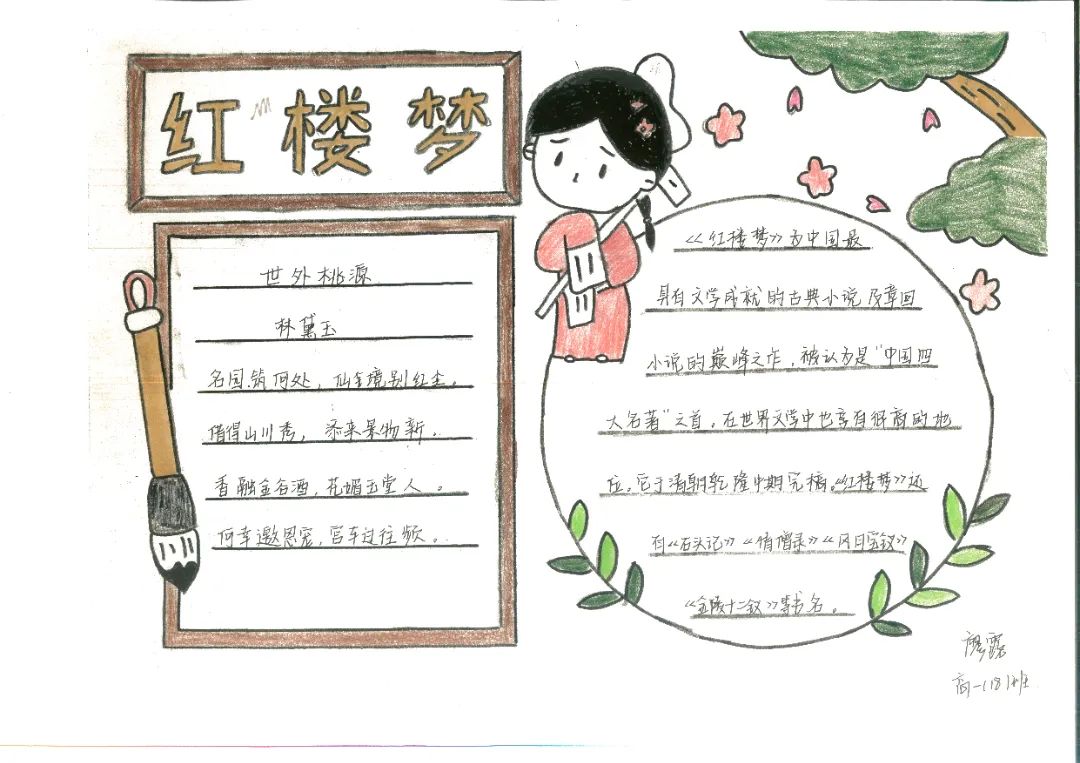 红楼梦
世外桃源
林黛玉
名园筑何处，仙境别红尘。
借得山川秀，添来景物新。
香融金谷酒，花媚玉堂人。
何幸邀恩宠，宫车过往频。
《红楼梦》为中国最
具有文学成就的古典小说及章回
小说的巅峰之作，被认为是“中国四
大名著”之首，在世界文学中也享有很高的地
位。它于清朝乾隆中期完稿。《红楼梦》还
有《石头记》《情僧录》《风月宝钗》
《金陵十二钗》等书名。
廖露
高一(18)班